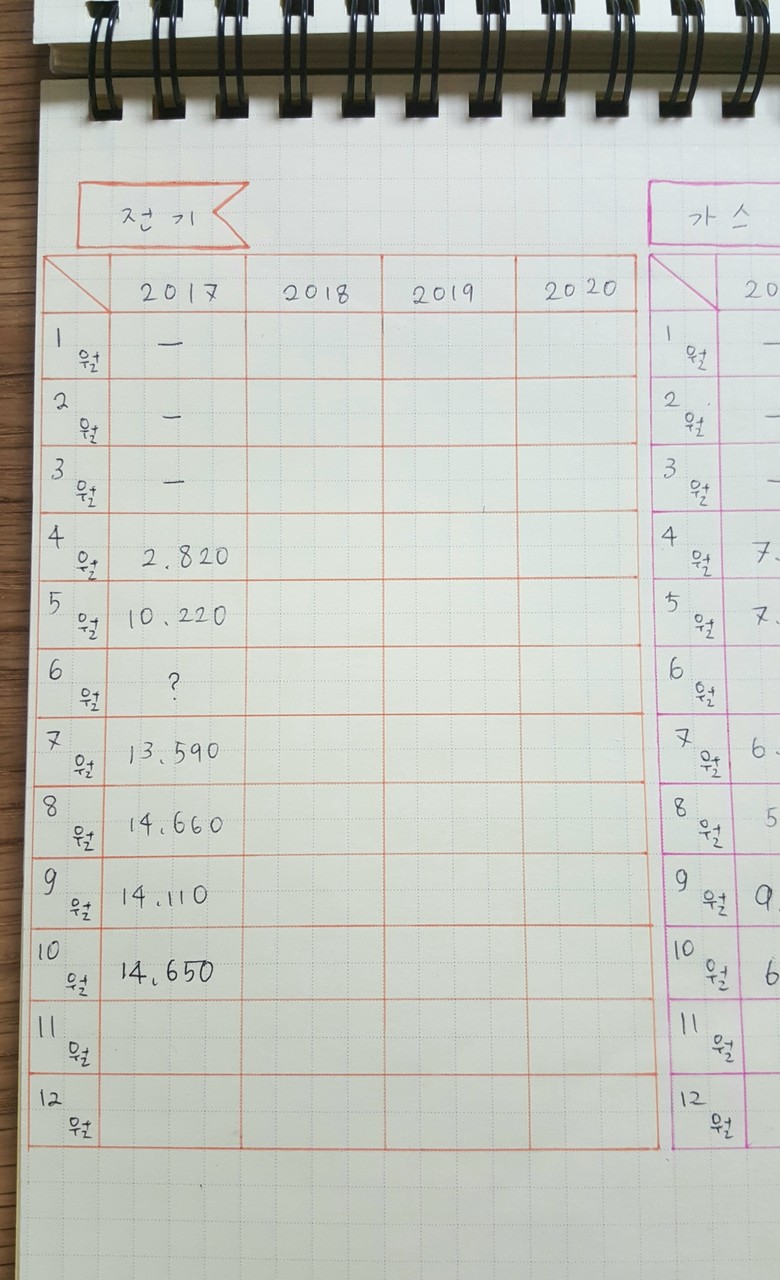 전기
2017 2018 2019 2020
1월 —
2월 —
3월 —
4월 2.820
5월 10.220
6월 ?
7월 13.590
8월 14.660
9월 14.110
10월 14.650
11월
12월
가스
20
1월 —
2월 —
3월 —
4월 7.
5월 7.
6월
7월 6.
8월 5
9월 9.
10월 6
11월
12월